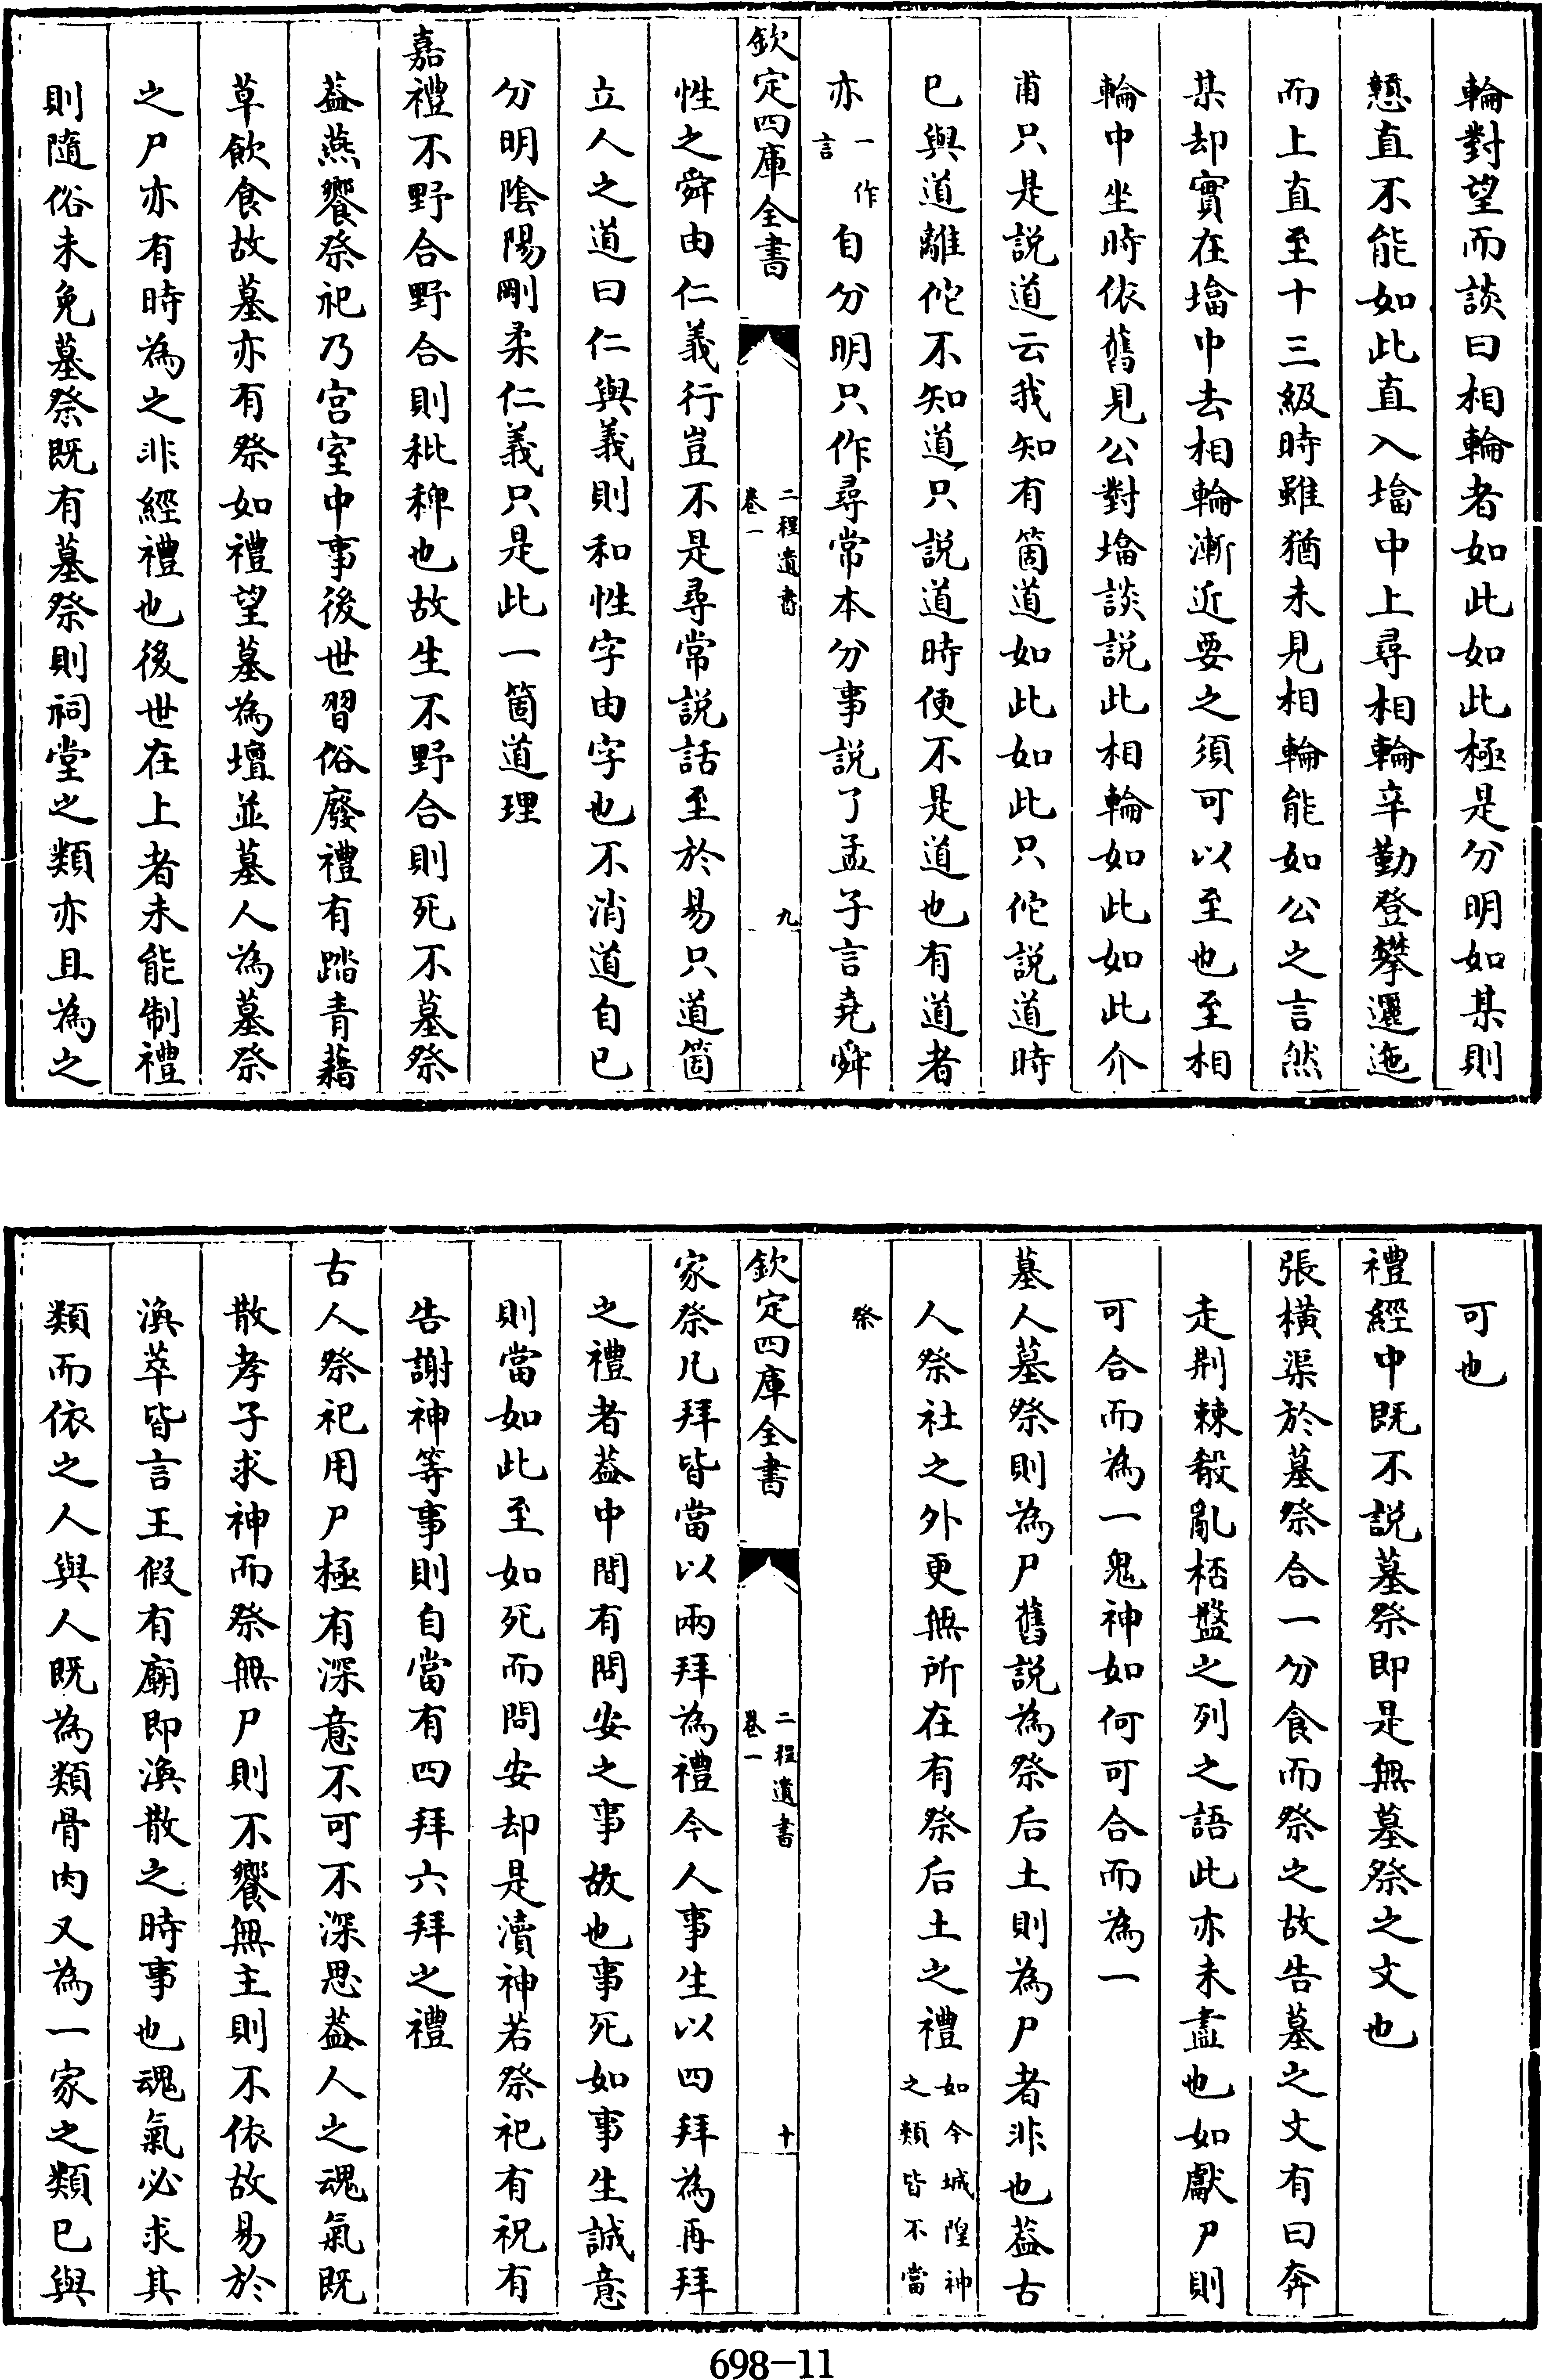 輪對望而談曰相輪者如此如此極是分明如某則
戇直不能如此直入㙮中上尋相輪辛勤登攀邐迤
而上直至十三級時雖猶未見相輪能如公之言然
某却實在㙮中去相輪漸近要之須可以至也至相
輪中坐時依舊見公對㙮談説此相輪如此如此介
甫只是説道云我知有箇道如此如此只佗説道時
已與道離佗不知道只説道時便不是道也有道者
亦一作言自分明只作尋常本分事説了孟子言堯舜
欽定四庫全書
二程遺書
卷一
九
性之舜由仁義行豈不是尋常説話至於易只道箇
立人之道曰仁與義則和性字由字也不消道自已
分明陰陽剛柔仁義只是此一箇道理
嘉禮不野合野合則秕稗也故生不野合則死不墓祭
葢燕饗祭祀乃宫室中事後世習俗廢禮有踏青藉
草飲食故墓亦有祭如禮望墓為壇並墓人為墓祭
之尸亦有時為之非經禮也後世在上者未能制禮
則隨俗未免墓祭既有墓祭則祠堂之類亦且為之
可也
禮經中既不説墓祭即是無墓祭之文也
張橫渠於墓祭合一分食而祭之故告墓之文有曰奔
走荆棘殽亂桮盤之列之語此亦未盡也如獻尸則
可合而為一鬼神如何可合而為一
墓人墓祭則為尸舊説為祭后土則為尸者非也葢古
人祭社之外更無所在有祭后土之禮如今城隍神之類皆不當
祭
欽定四庫全書
二程遺書
卷一
十
家祭凡拜皆當以兩拜為禮今人事生以四拜為再拜
之禮者葢中間有問安之事故也事死如事生誠意
則當如此至如死而問安却是瀆神若祭祀有祝有
告謝神等事則自當有四拜六拜之禮
古人祭祀用尸極有深意不可不深思葢人之魂氣既
散孝子求神而祭無尸則不饗無主則不依故易於
渙萃皆言王假有廟即渙散之時事也魂氣必求其
類而依之人與人既為類骨肉又為一家之類已與
698-11